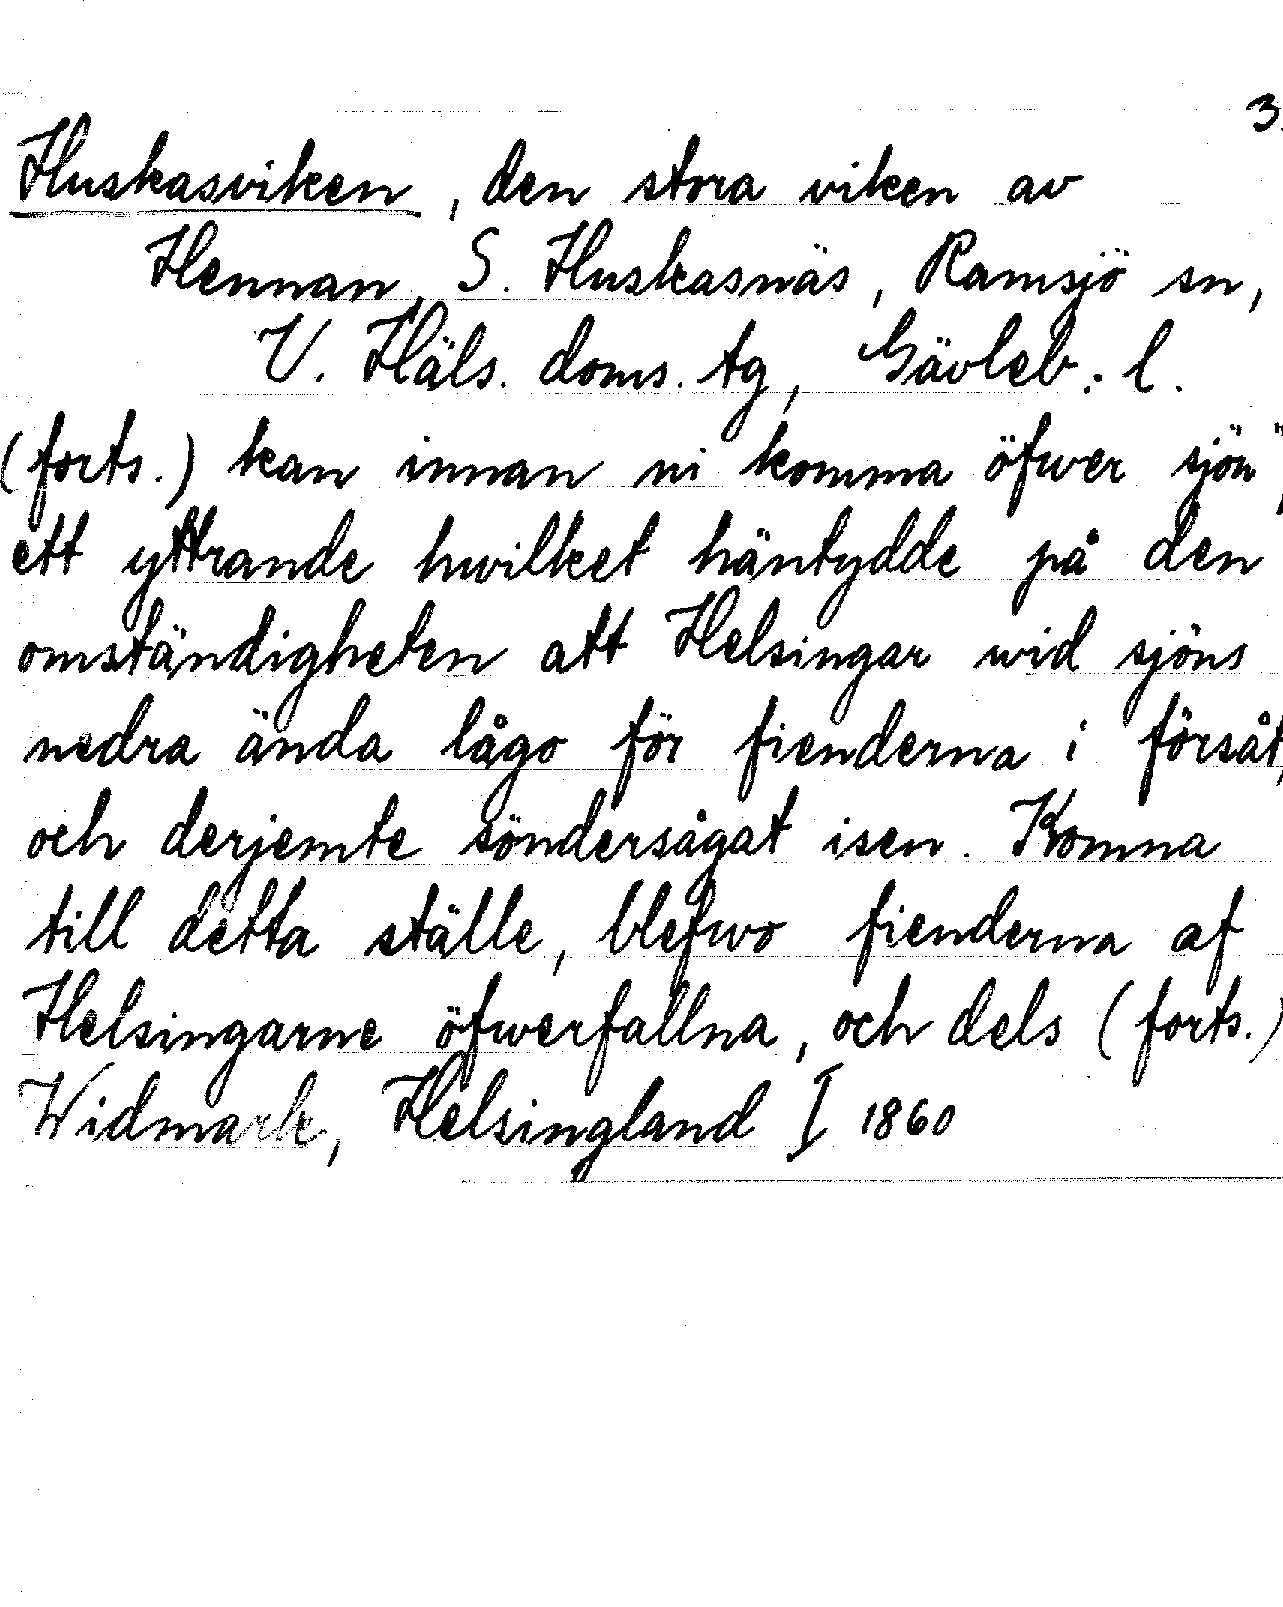 3.
Huskasviken, den stora viken av
Hennan, S. Huskasnäs, Ramsjö sn,
V. Häls. doms. tg, Gävleb. l.
(forts.) kan innan ni komma öfwer sjön",
ett yttrande hwilket häntydde på den
omständigheten att Helsingar wid sjöns
nedra ända lågo för fienderna i försåt,
och derjemte söndersågat isen. Komna
till detta ställe, blefwo fienderna af
Helsingarne öfwerfallna, och dels (forts.)
Widmark, Helsingland I 1860